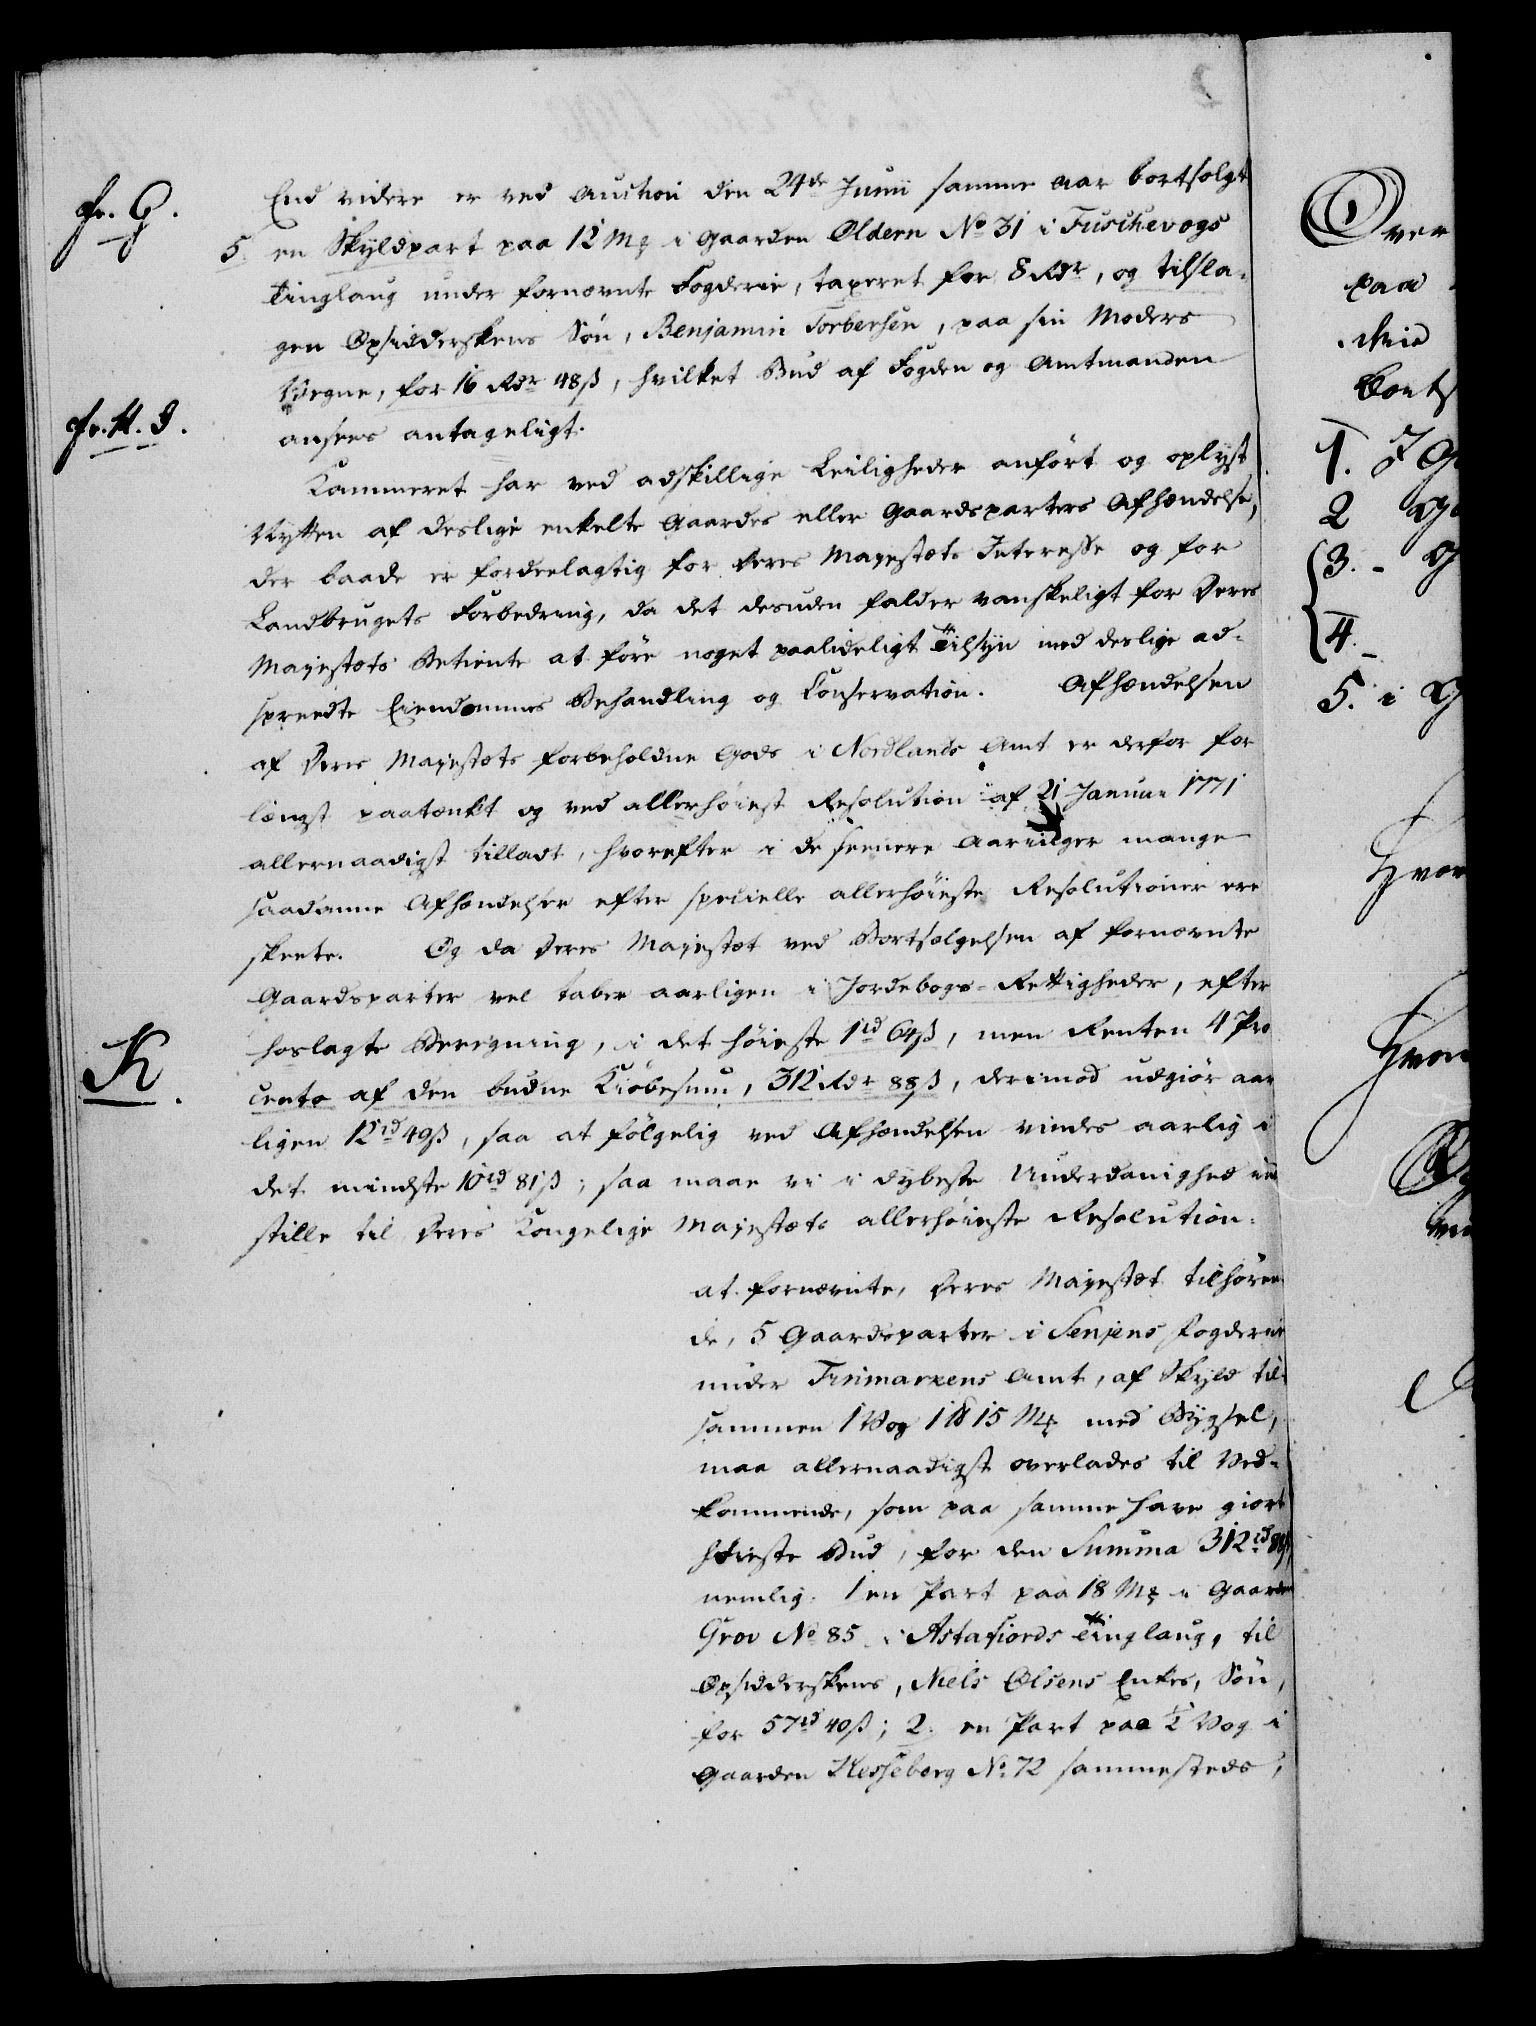 fr. G.
End videre er ved Auction den 24de Junii samme Aar bortsolgt
5. en Skyldpart paa 12 Mk i Gaarden Oldern No 31 i Fuschevogs
Tinglaug under fornævnte Fogderie, taxeret for 8 Rdr, og tilsla-
gen Opsidderskens Søn, Benjamin Torbersen, paa sin Moders
Vegne, for 16 Rdr 48ß, hvilket Bud af Fogden og Amtmanden
fr. H. I.
ansees antageligt.
Kammeret har ved adskillige Leiligheder anført og oplyst
Nytten af deslige enkelte Gaardes eller Gaardsparters Afhændelse,
der baade er fordeelagtig for Deres Majestæts Interesse og for
Landbrugets Forbedring, da det desuden falder vanskeligt for Deres
Majestæts Betiente at føre noget paalideligt Tilsyn med deslige ad-
spredte Eiendommes Behandling og Conservation. Afhændelsen
af Deres Majestæts forbeholdne Gods i Nordlands Amt er derfor for
længst paatænkt og ved allerhøiest Resolution af 21 Januar 1771
allernaadigst tilladt, hvorefter i de seenere Aaringer mange
saadanne Afhændelser efter specielle allerhøieste Resolutioner ere
skeete. Og da Deres Majestæt ved Bortsælgelsen af fornævnte
Gaardsparter vel taber aarligen i Jordebogs-Rettigheder, efter
K.
hoslagte Beregning, i det høieste 1rd 64ß, men Renten 4 Pro
Cento af den budne Kiøbesum, 312 Rdr 88ß, derimod udgiør aar
ligen 12rd 49ß, saa at følgelig ved Afhændelsen vindes aarlig i
det mindste 10rd 81ß; saa maae vi i dybeste Underdanighed ind
stille til Deres Kongelige Majestæts allerhøieste Resolution:
at fornævnte, Deres Majestæt tilhøren-
de, 5 Gaardsparter i Senjens Fogderie
under Finmarkens Amt, af Skyld til-
sammen 1 Vog 1 ℔ 15 Mk med Bygsel,
maa allernaadigst overlades til Ved-
kommende, som paa samme have giort
høieste Bud, for den Summa 312rd 88ß,
nemlig: 1 en Part paa 18 Mk i Gaarden
Grov No 85 i Astafiords Tinglaug, til
Opsidderskens, Niels Olsens Enkes, Søn,
for 57rd 40ß; 2. en Part paa ½ Vog i
Gaarden Hesseberg No 72 sammesteds,
Over
paa
Bort
1. I G
2
3. - G
4.
5. i G
Hvor
Hvor